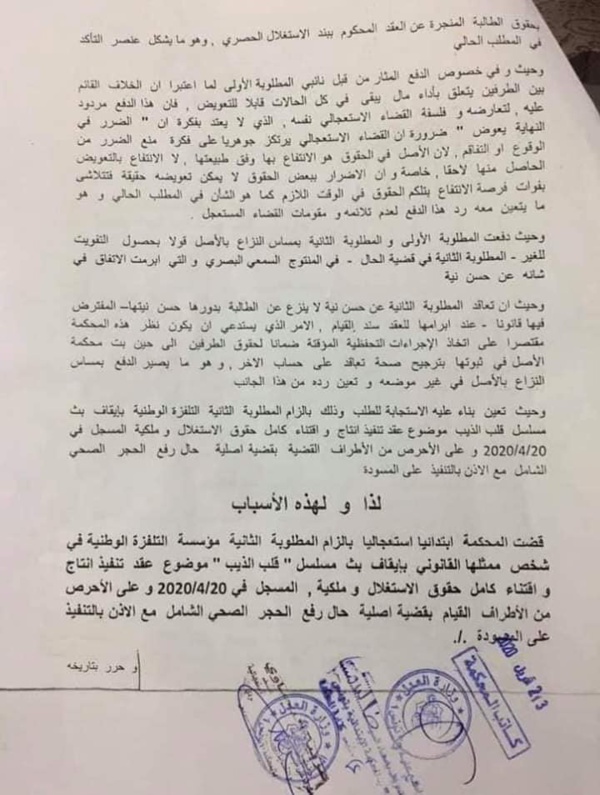 بحقوق الطالبة المنجرة عن العقد المحكوم ببند الاستغلال الحصري , وهو ما يشكل عنصر التأكد
في المطلب الحالي
وحيث و في خصوص الدفع المثار من قبل نائبي المطلوبة الأولى لما اعتبرا ان الخلاف القائم
بين الطرفين يتعلق بأداء مال يبقى في كل الحالات قابلا للتعويض , فان هذا الدفع مردود
عليه , لتعارضه و فلسفة القضاء الاستعجالي نفسه , الذي لا يعتد بفكرة ان " الضرر في
النهاية يعوض " ضرورة ان القضاء الاستعجالي يرتكز جوهريا على فكرة منع الضرر من
الوقوع او التفاقم , لان الأصل في الحقوق هو الانتفاع بها وفق طبيعتها , لا الانتفاع بالتعويض
الحاصل منها لاحقا , خاصة و ان الاضرار ببعض الحقوق لا يمكن تعويضه حقيقة فتتلاشى
بفوات فرصة الانتفاع بتلكم الحقوق في الوقت اللازم كما هو الشأن في المطلب الحالي و هو
ما يتعين معه رد هذا الدفع لعدم تلائمه و مقومات القضاء المستعجل .
وحيث دفعت المطلوبة الأولى و المطلوبة الثانية بمساس النزاع بالأصل قولا بحصول التفويت
للغير - المطلوبة الثانية في قضية الحال - في المنتوج السمعي البصري و التي ابرمت الاتفاق في
شانه عن حسن نية
وحيث ان تعاقد المطلوبة الثانية عن حسن نية لا ينزع عن الطالبة بدورها حسن نيتها– المفترض
فيها قانونا - عند ابرامها للعقد سند القيام , الامر الذي يستدعي ان يكون نظر هذه المحكمة
مقتصرا على اتخاذ الإجراءات التحفظية المؤقتة ضمانا لحقوق الطرفين الى حين بت محكمة
الأصل في ثبوتها بترجيح صحة تعاقد على حساب الاخر , و هو ما يصير الدفع بمساس
النزاع بالأصل في غير موضعه و تعين رده من هذا الجانب
وحيث تعين بناء عليه الاستجابة للطلب وذلك بالزام المطلوبة الثانية التلفزة الوطنية بإيقاف بث
مسلسل قلب الذيب موضوع عقد تنفيذ انتاج و اقتناء كامل حقوق الاستغلال و ملكية المسجل في
2020/4/20 و على الأحرص من الأطراف القضية بقضية اصلية حال رفع الحجر الصحي
الشامل مع الاذن بالتنفيذ على المسودة
لذا و لهذه الأسباب
قضت المحكمة ابتدائيا استعجاليا بالزام المطلوبة الثانية مؤسسة التلفزة الوطنية في
شخص ممثلها القانوني بإيقاف بث مسلسل " قلب الذيب " موضوع عقد تنفيذ انتاج
و اقتناء كامل حقوق الاستغلال و ملكية , المسجل في 2020/4/20 و على الأحرص
من الأطراف القيام بقضية اصلية حال رفع الحجر الصحي الشامل مع الاذن بالتنفيذ
على المسودة ./.
و حرر بتاريخه
23 أفريل 2020
كاتب المحكمة
وزارة العدل
وزارة العدل